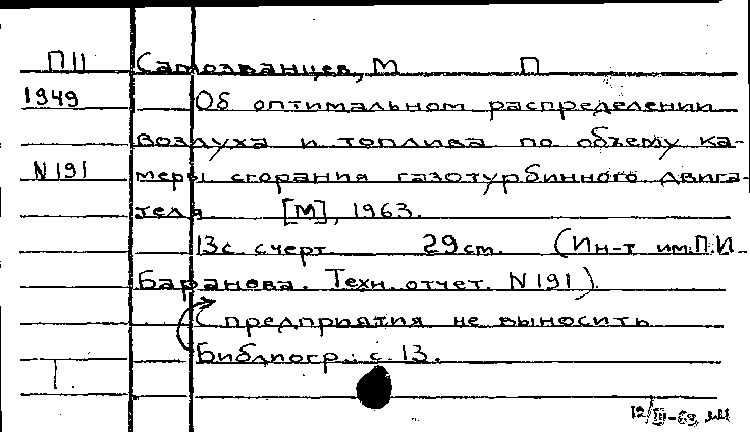 ПII Самозванцев, М П
1949 Об оптимальном распределении
воздуха и топлива по объему ка-
N 191 меры сгорания газотурбинного двига-
теля [М], 1963.
13с. с черт. 29 см. (Ин-т им. П.И.
Баранова. Техн. отчет. N 191).
С предприятия не выносить
Библиогр.: с. 13.
1.
12/III-63